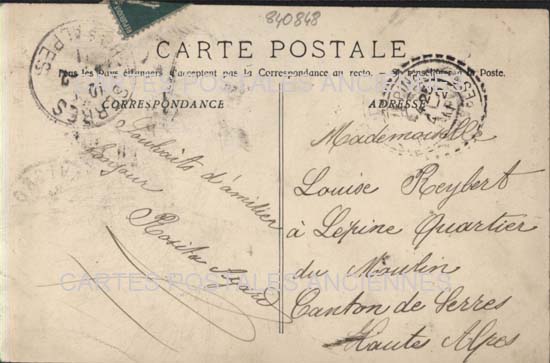 840848
CARTE POSTALE
Tous les Pays étrangers n'acceptent pas la Correspondance au recto. Se renseigner à la Poste.
CORRESPONDANCE
ADRESSE
SERRES
ALPES
Souhaits d'amitier
Bonjour
Rosita
Mademoiselle
Louise Reybert
à Lépine Quartier
du Moulin
Canton de Serres
Hautes Alpes
CARTES POSTALES ANCIENNES
CARTES POSTALES ANCIENNES